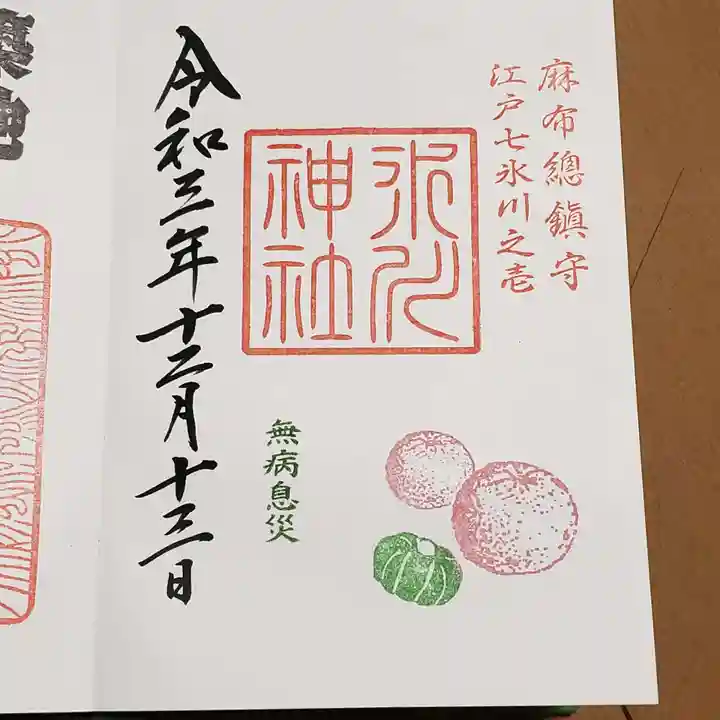 麻布總鎮守
江戸七氷川之壱
氷川
神社
無病息災
令和三年十二月十三日